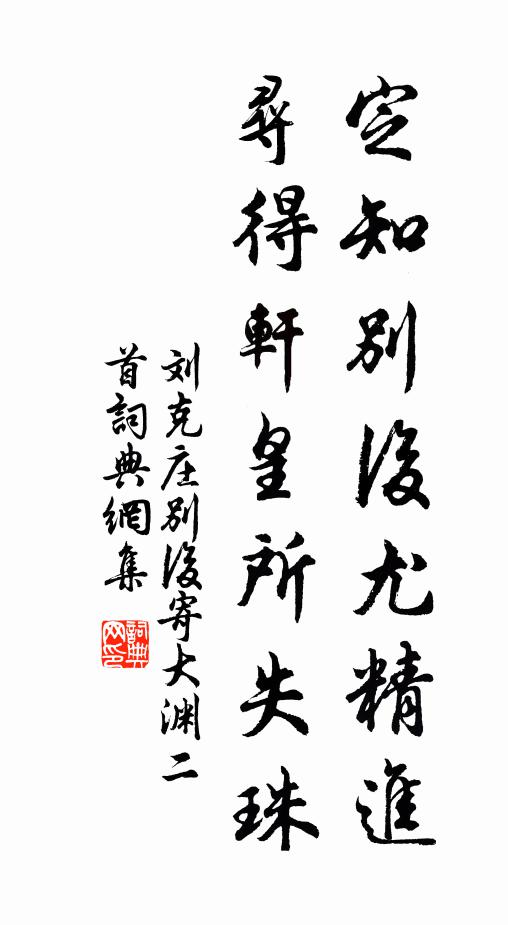 定知別後尤精進
尋得軒皇所失珠
刘克庄别後寄大渊二
首詞典網集
詞典
网印